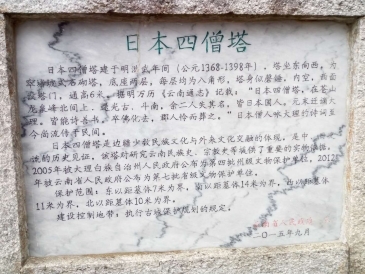 日本四僧塔
日本四僧塔建于明洪武年间（公元1368-1398年），塔坐东向西，为
空心 石砌塔，底座两层，每层均为八角形，塔身似磬锤，内空，西面
设塔门，通高6米。据明万历《云南通志》记载，“日本四僧塔，在苍山
龙泉峰北涧上，逯光古、斗南，余二人失其名，皆日本国人。元末迁谪大
理，皆能诗善书，卒佛化去，郡人怜而葬之。”日本僧人咏大理的诗词至
今尚流传于民间。
日本四僧塔是边疆少数民族文化与外来文化交融的体现，是中
流的历史见证，该塔对研究云南民族史、宗教史等提供了重要的实物依据。
2005年被大理白族自治州人民政府公布为第四批州级文物保护单位，2012
年被云南省人民政府公布为第七批省级文物保护单位。
保护范围：东以距墓体7米为界，南以距墓体14米为界，西以距墓体
11米为界，北以距墓体10米为界。
建设控制地带：执行古城保护规划的规定。
省人民政府
二〇一五年九月